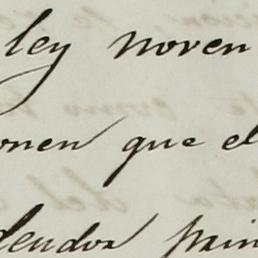 ley noven
onen que el
dendor prin